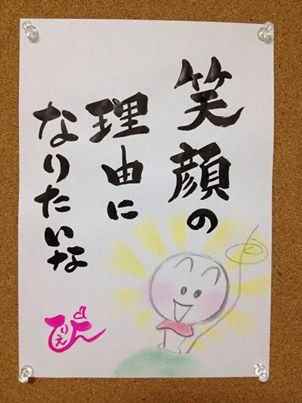 笑顔の
理由に
なりたいな